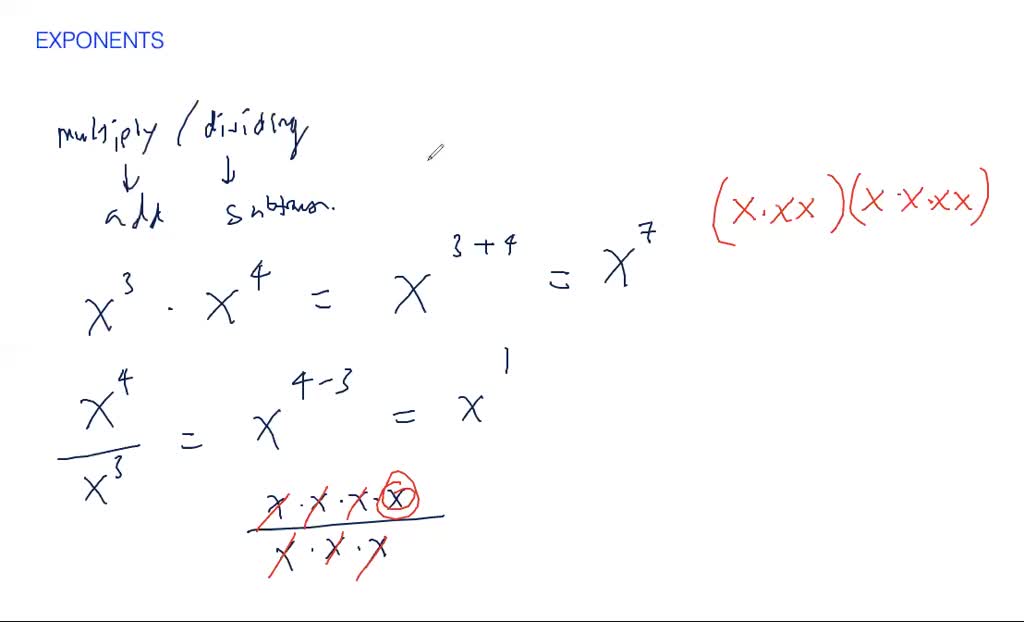 EXPONENTS
multiply / dividing
↓ ↓
add
(x·xx)(x·x·xx)
x³ · x⁴ = x³⁺⁴ = x⁷
x⁴/x³ = x⁴⁻³ = x¹
x · x · x · x
x · x · x